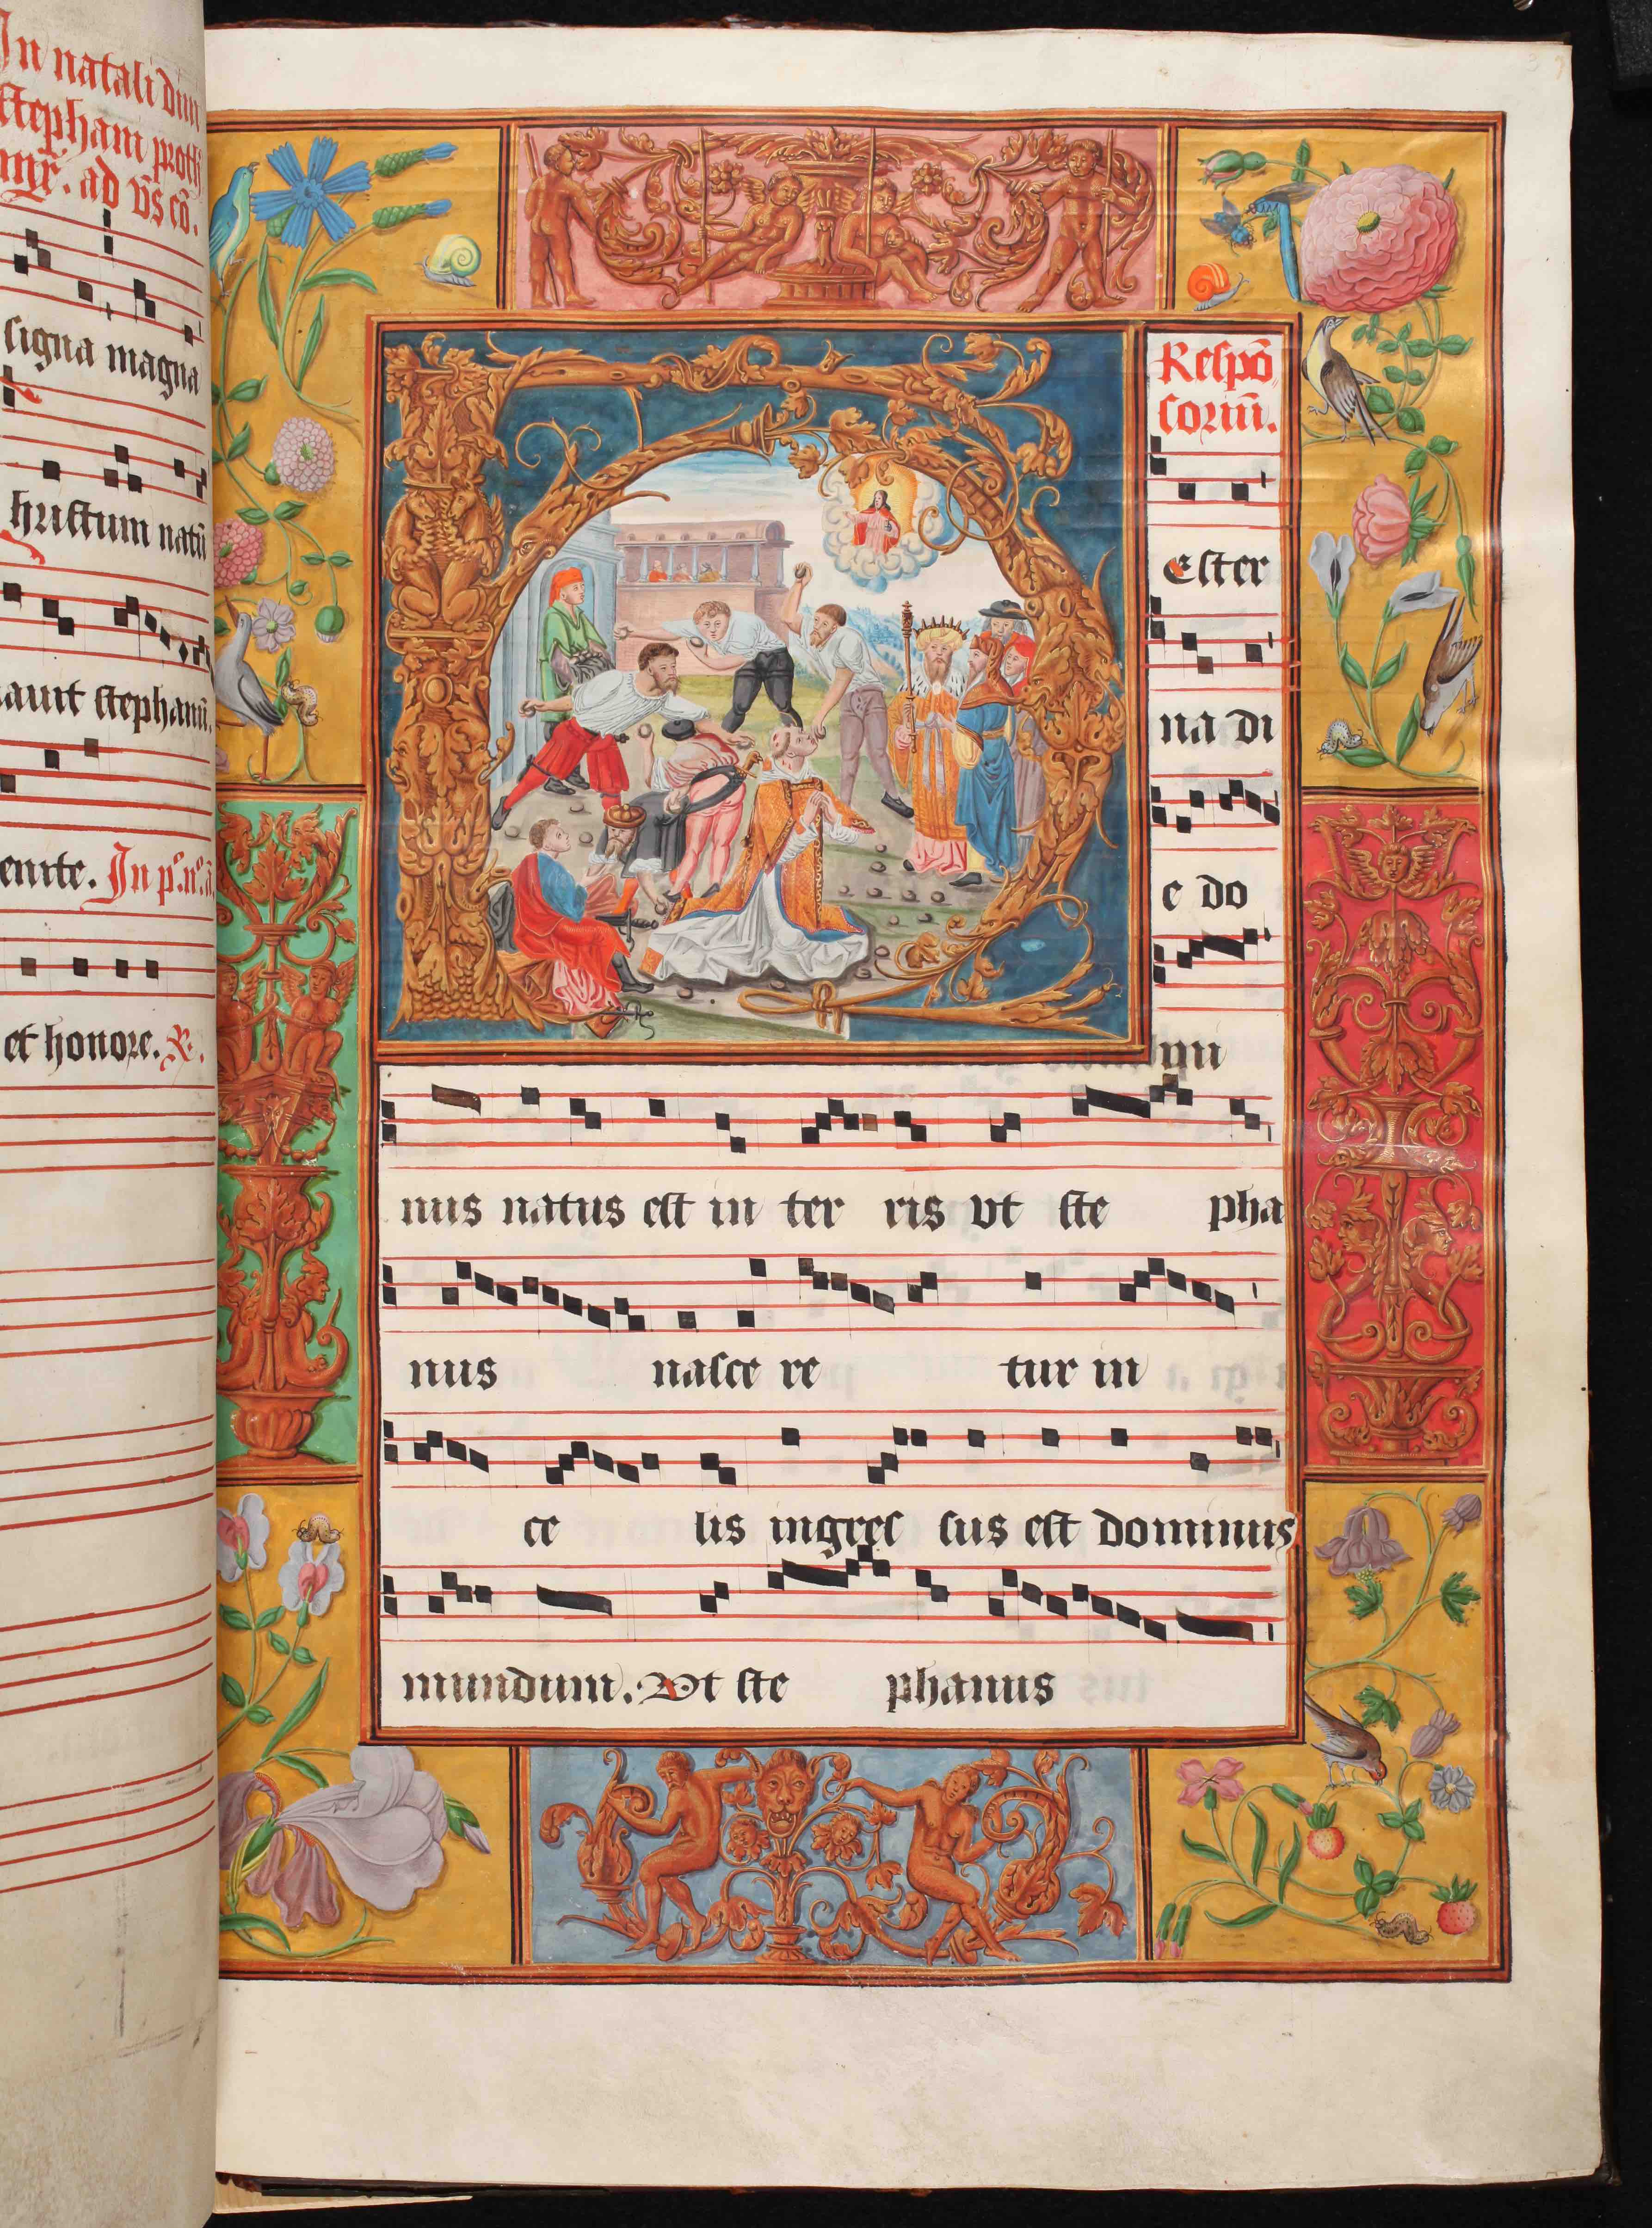 In natali diui
stephani proth
mr̄. ad v̄s cō.
signa magna
hristum natū
auit stephanū.
enite. In pº. nº. a
et honore. R.
Respō
soriū.
ester
na di
e do
nus natus est in ter ris vt ste pha
nus nasce re tur in
ce lis ingres sus est dominus
mundum. Vt ste phanus